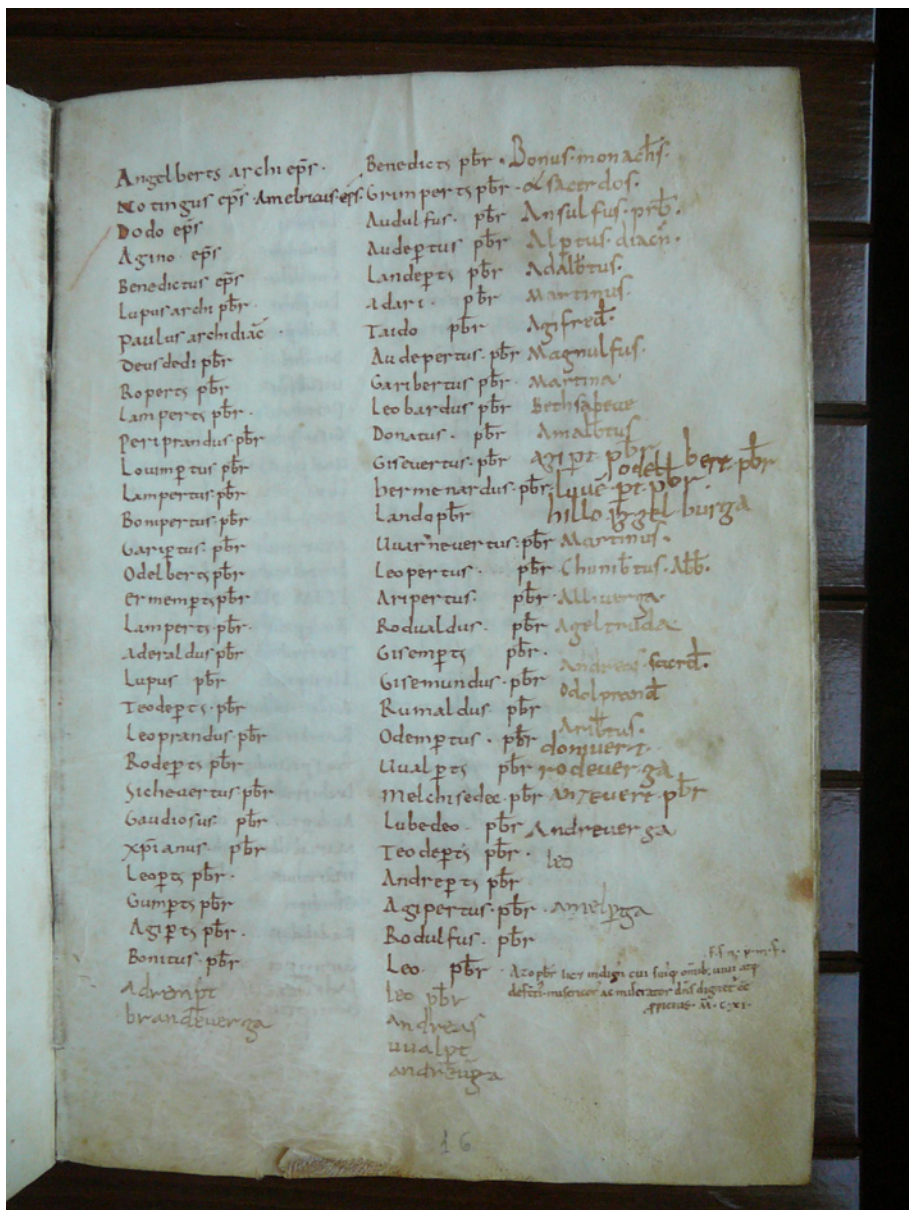 Angelberts archi eps.
Notingus eps. Amelricus. eps.
Dodo eps
Agino eps
Benedictus eps
Lupus archi pbr.
Paulus archidiac
Deusdedi pbr
Roperts pbr
Lamperts pbr.
Periprandus pbr
Louimptus pbr
Lampertus. pbr
Bompertus. pbr
Gariptus. pbr
Odelberts pbr
Ermempts pbr
Lamperts pbr.
Aderaldus pbr
Lupus pbr
Teodepts. pbr
Leoprandus. pbr
Rodepts pbr
Sichevertus pbr
Gaudiosus pbr
xpianus pbr
Leopts pbr.
Gumpts pbr
Agipts pbr.
Bonitus. pbr
adrempt
brandeverga
Benedicts pbr.
Grimperts pbr.
Audulfus. pbr
Audeptus pbr
Landepts pbr
Adari. pbr
Taido pbr
Audepertus. pbr
Garibertus pbr
Leobardus pbr
Donatus. pbr
Gisevertus. pbr
hermenardus. pbr
Lando pbr
Uuarnevertus. pbr
Leopertus. pbr
Aripertus. pbr
Rodualdus. pbr
Gisempts pbr.
Gisemundus. pbr
Rumaldus. pbr
Odemptus. pbr
Uualpts pbr
Melchisedec. pbr
Lubedeo. pbr
Teodepts pbr.
Andrepts pbr
Agipertus. pbr
Rodulfus. pbr
Leo. pbr
leo pbr
andreas
uualpt
andreuga
Bonus. monachs.
& sacerdos.
Ansulfus. prb.
Alptus. diacn.
Adalbtus.
Martinus.
Agifred.
Magnulfus.
Martina
Bethsabeue
Amalbtus
agipt. pbr
odelbert. pbr
luve. pt. pbr.
hillo. ingelburga
Martinus.
Chunibtus. Abb.
Alliverga
Ageltruda
Andreas. sacrd.
Odolprand
Aribtus.
donivert.
rodeverga
antevert. pbr
Andreverga
leo
amelpga
Azo pbr
16